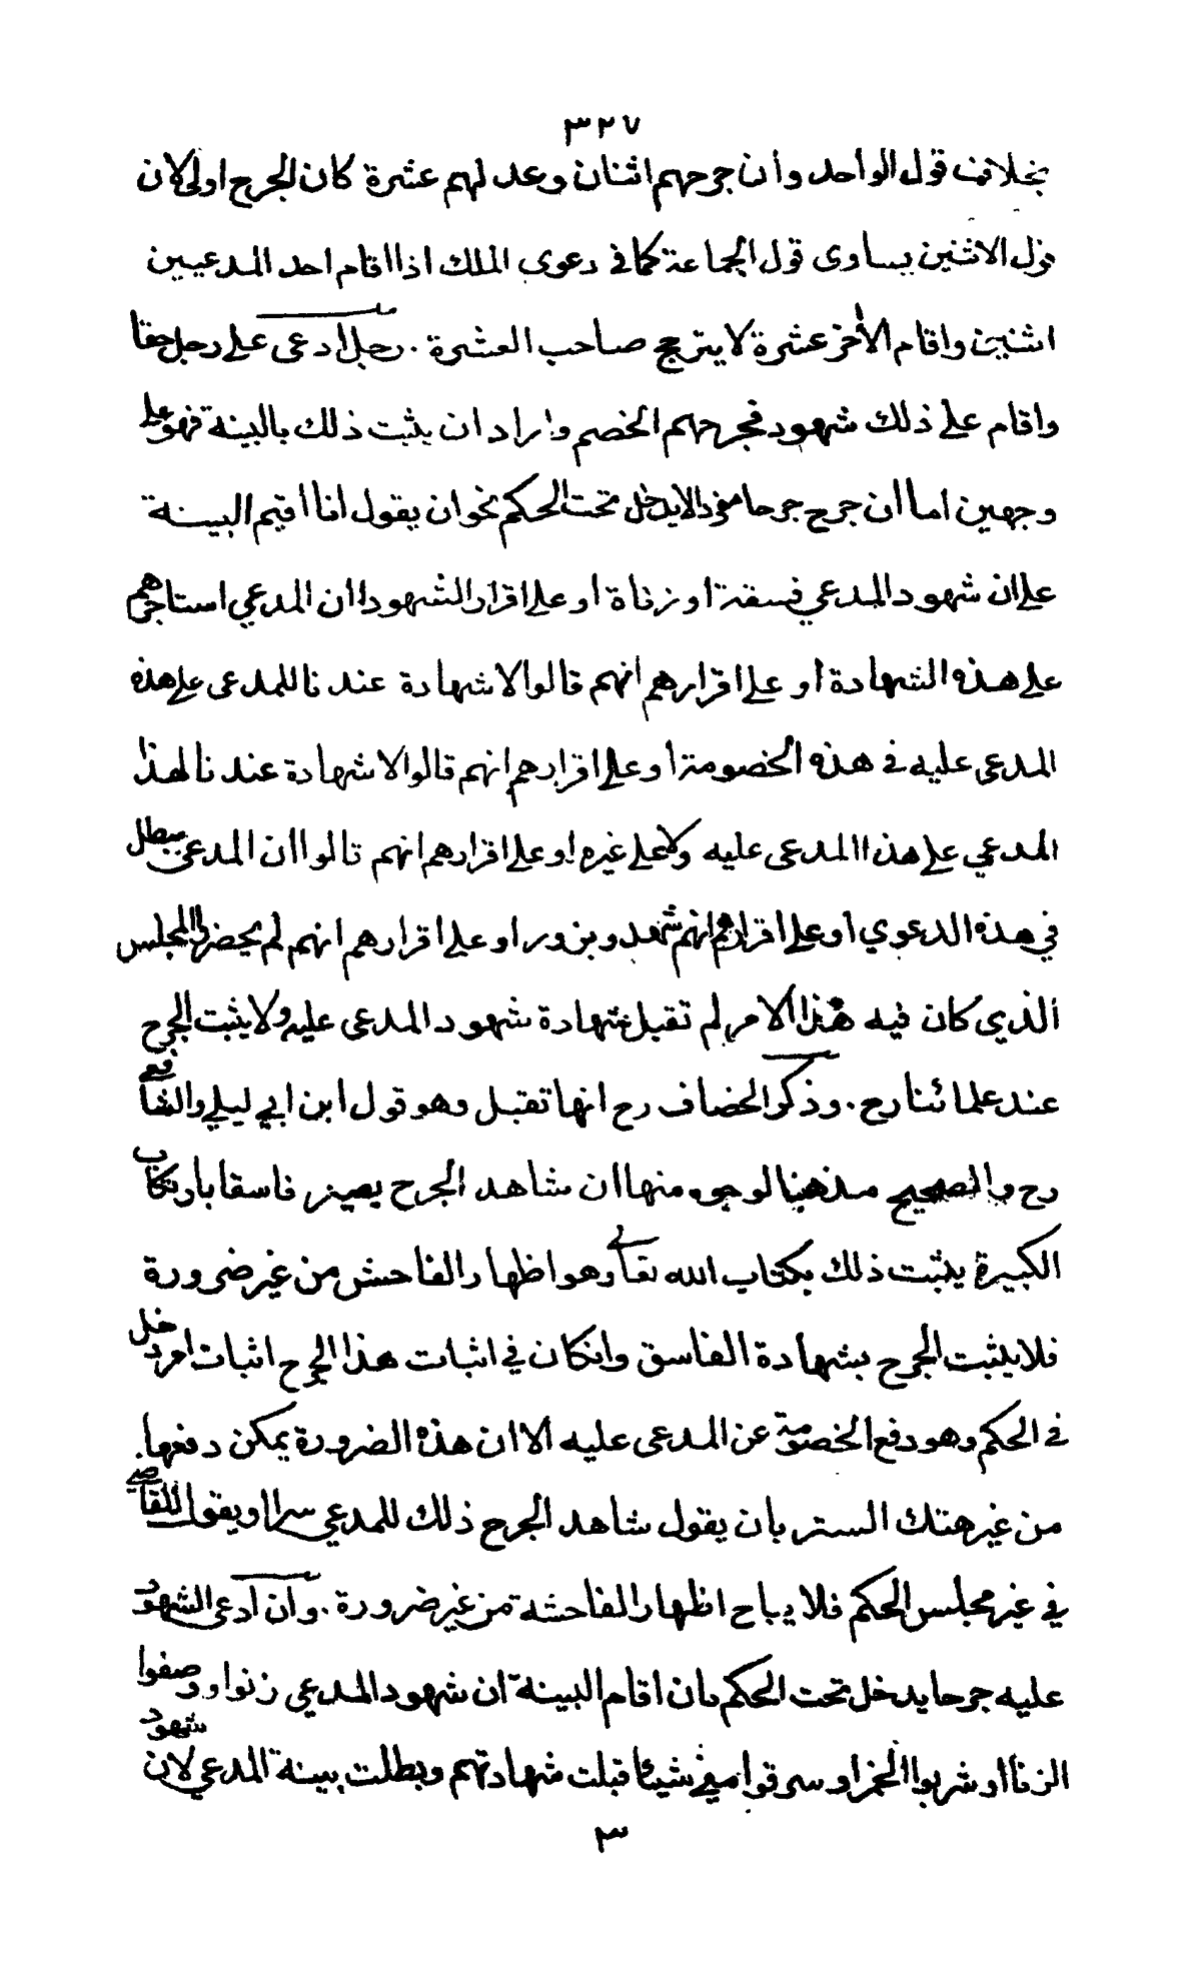 ٣٢٧
بخلاف قول الواحد وان جرحهم اثنان وعدلهم عشرة كان الجرح اولى لان
قول الاثنين يساوى قول الجماعة كما فى دعوى الملك اذا اقام احد المدعيين
اثنين واقام الآخر عشرة لا يترجح صاحب العشرة . رجل ادعى على رجل حقا
واقام على ذلك شهودا فجرحهم الخصم واراد ان يثبت ذلك بالبينة فهو على
وجهين اما ان جرح جرحا مفردا لا يدخل تحت الحكم نحو ان يقول انا اقيم البينة
على ان شهود المدعي فسقة او زناة او على اقرار الشهود ان المدعي استاجرهم
على هذه الشهادة او على اقرارهم انهم قالوا لا شهادة عندنا للمدعى على هذه
المدعى عليه فى هذه الخصومة او على اقرارهم انهم قالوا لا شهادة عندنا لهذا
المدعي على هذا المدعى عليه ولا على غيره او على اقرارهم انهم قالوا ان المدعى مبطل
في هذه الدعوي او على اقرارهم انهم شهدوا بزور او على اقرارهم انهم لم يحضروا المجلس
الذي كان فيه هذا الامر لم تقبل شهادة شهود المدعى عليه ولا يثبت الجرح
عند علمائنا رح . وذكر الخصاف رح انها تقبل وهو قول ابن ابي ليلي والشافعي
رح والصحيح مذهبنا لوجوه منها ان شاهد الجرح يصير فاسقا بارتكاب
الكبيرة يثبت ذلك بكتاب الله تعالى وهو اظهار الفاحش من غير ضرورة
فلا يثبت الجرح بشهادة الفاسق وان كان في اثبات هذا الجرح اثبات امر دخل
فى الحكم وهو دفع الخصومة عن المدعى عليه الا ان هذه الضرورة يمكن دفعها
من غير هتك الستر بان يقول شاهد الجرح ذلك للمدعي سرا او يقول للقاضي
في غير مجلس الحكم فلا يباح اظهار الفاحشة من غير ضرورة . وان ادعى الشهود
عليه جرحا يدخل تحت الحكم بان اقام البينة ان شهود المدعي زنوا ووصفوا
الزنا او شربوا الخمر او سرقوا مني شيئا قبلت شهادتهم وبطلت بينة المدعي لان شهود
٣